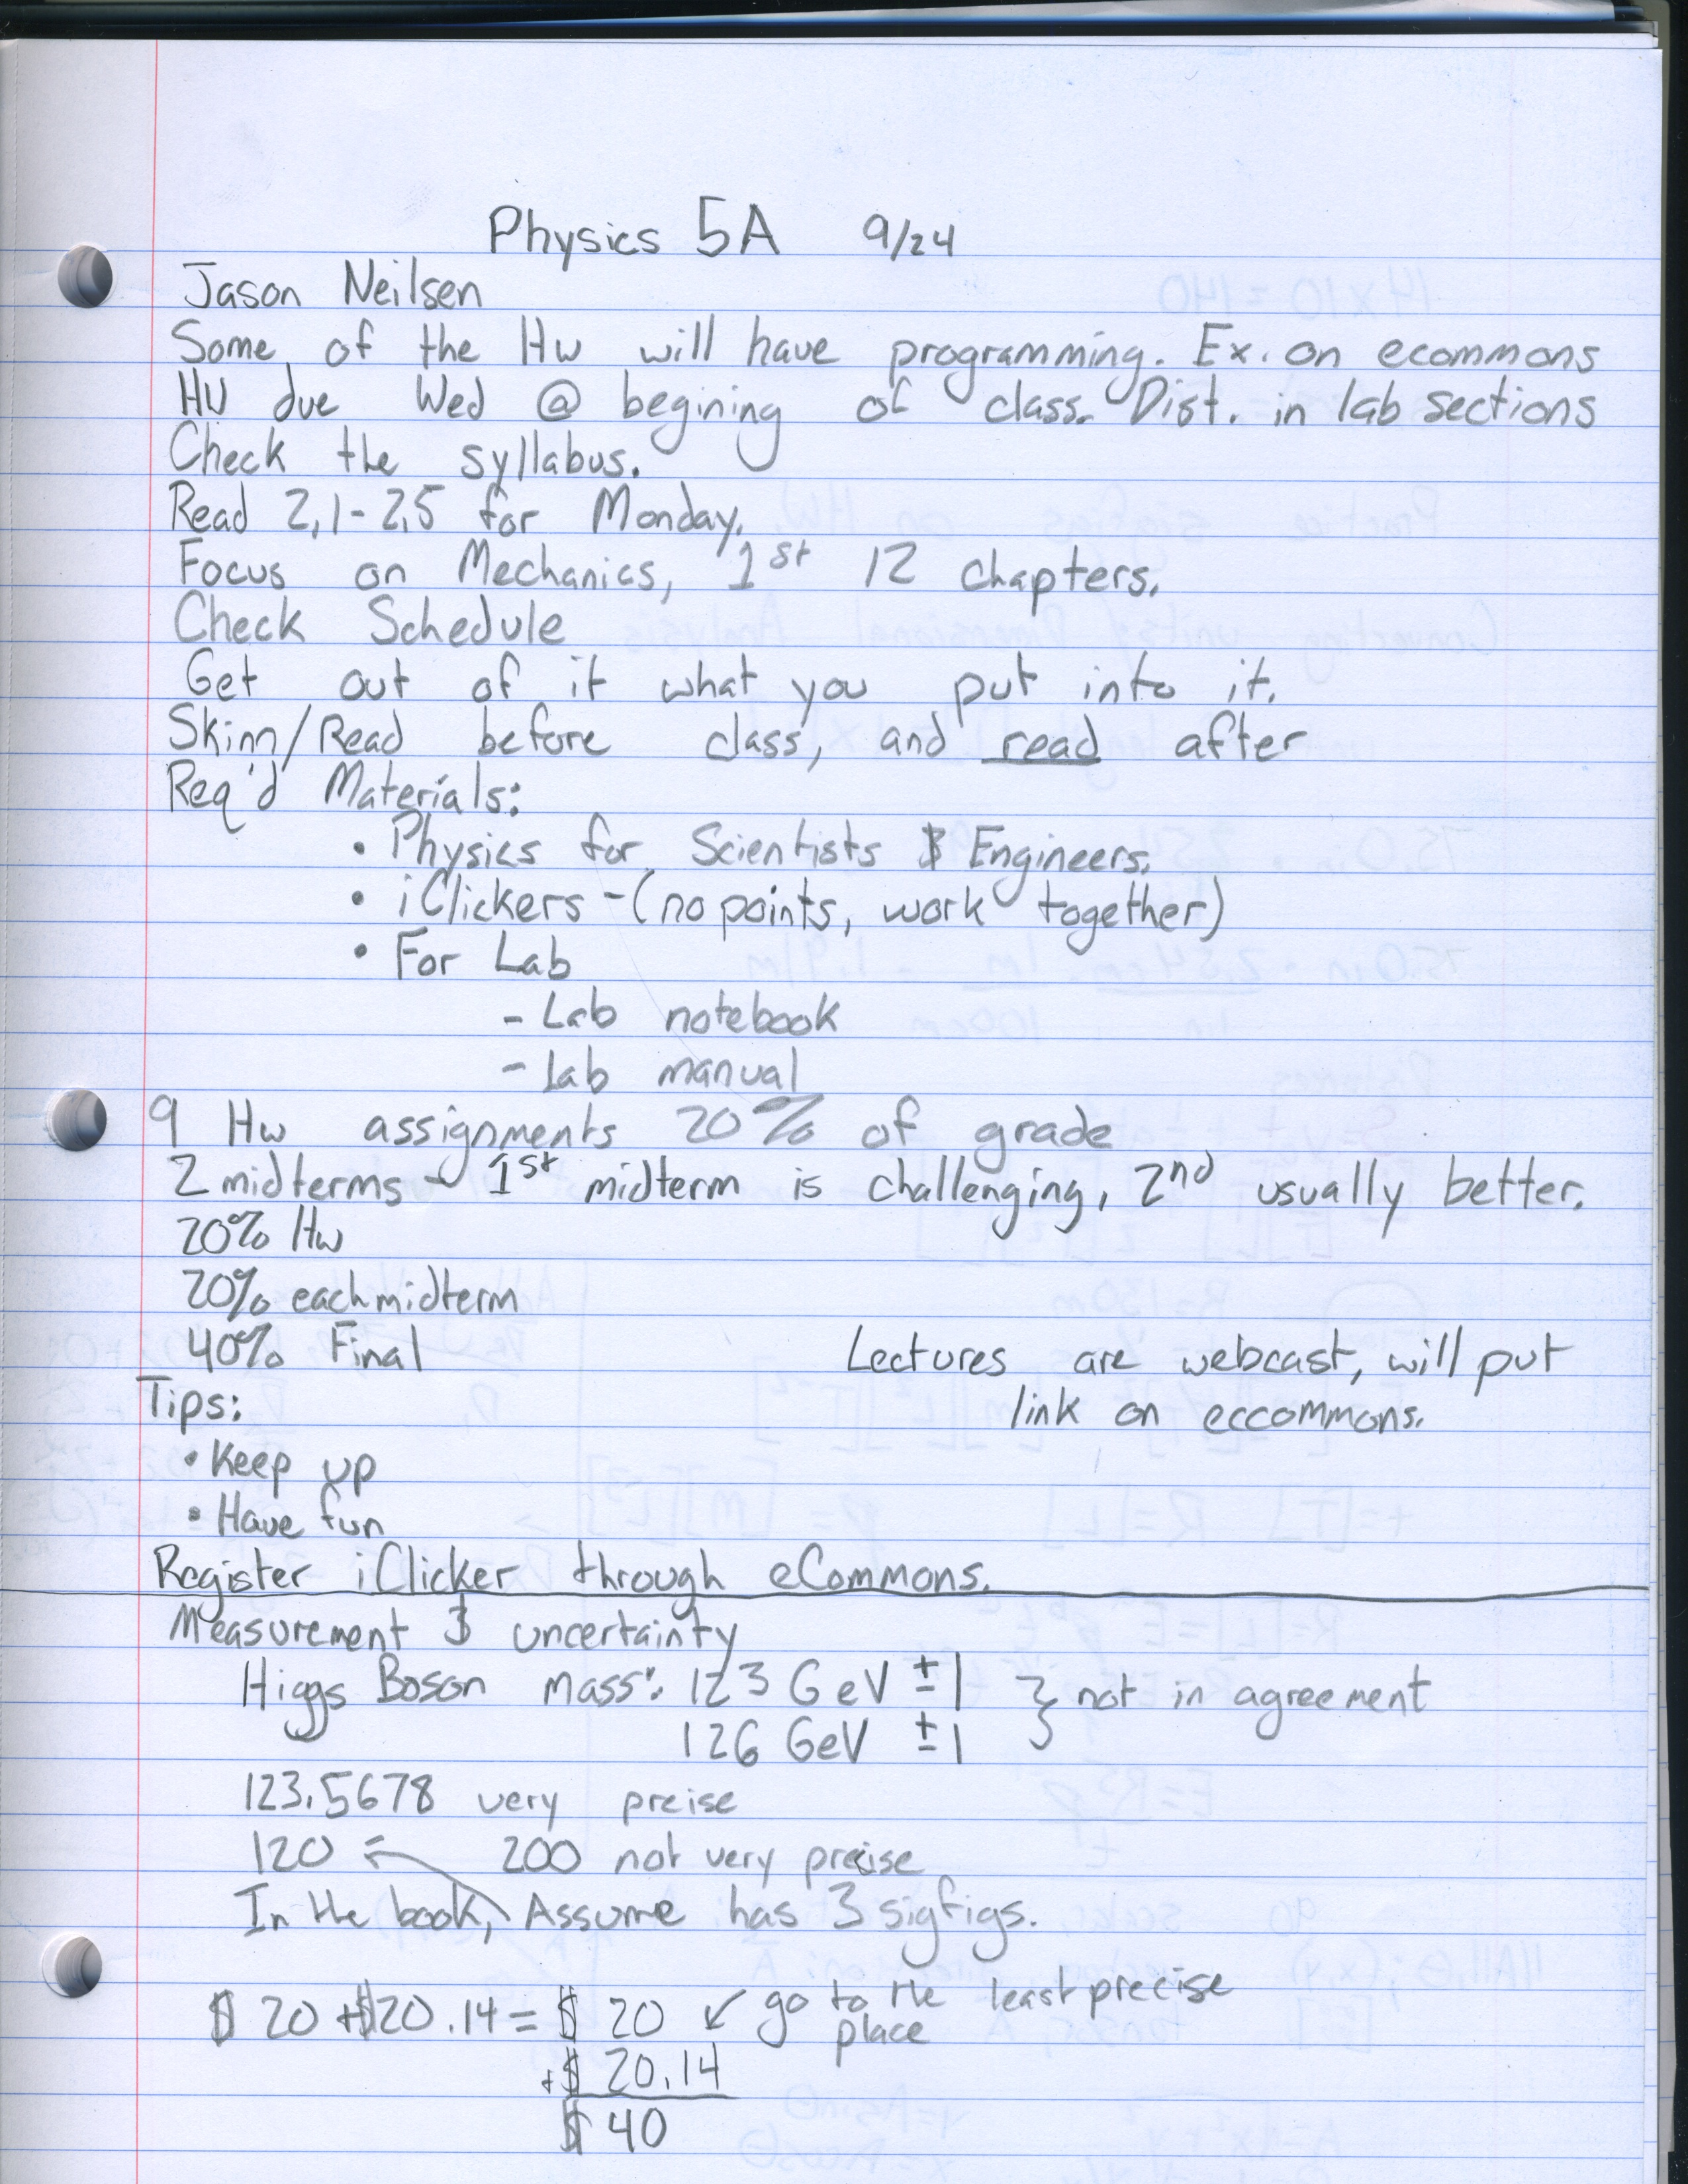 Physics 5A 9/24
Jason Neilsen
Some of the Hw will have programming. Ex. on ecommons
HW due Wed @ begining of class. Dist. in lab sections
Check the syllabus.
Read 2.1-2.5 for Monday.
Focus on Mechanics, 1st 12 chapters.
Check Schedule
Get out of it what you put into it.
Skim/Read before class, and read after
Req'd Materials:
• Physics for Scientists & Engineers.
• iClickers - (no points, work together)
• For Lab
- Lab notebook
- Lab manual
9 Hw assignments 20% of grade
2 midterms - 1st midterm is challenging, 2nd usually better.
20% Hw
20% each midterm
40% Final
Lectures are webcast, will put
link on eccommons.
Tips:
• Keep up
• Have fun
Register iClicker through eCommons.
Measurement & uncertainty
Higgs Boson mass: 123 GeV ±1 } not in agreement
126 GeV ±1
123.5678 very preise
120 ← 200 not very precise
In the book, Assume has 3 sigfigs.
$ 20 + $20.14 = $ 20 ↙ go to the least precise
place
+ $ 20.14
$ 40